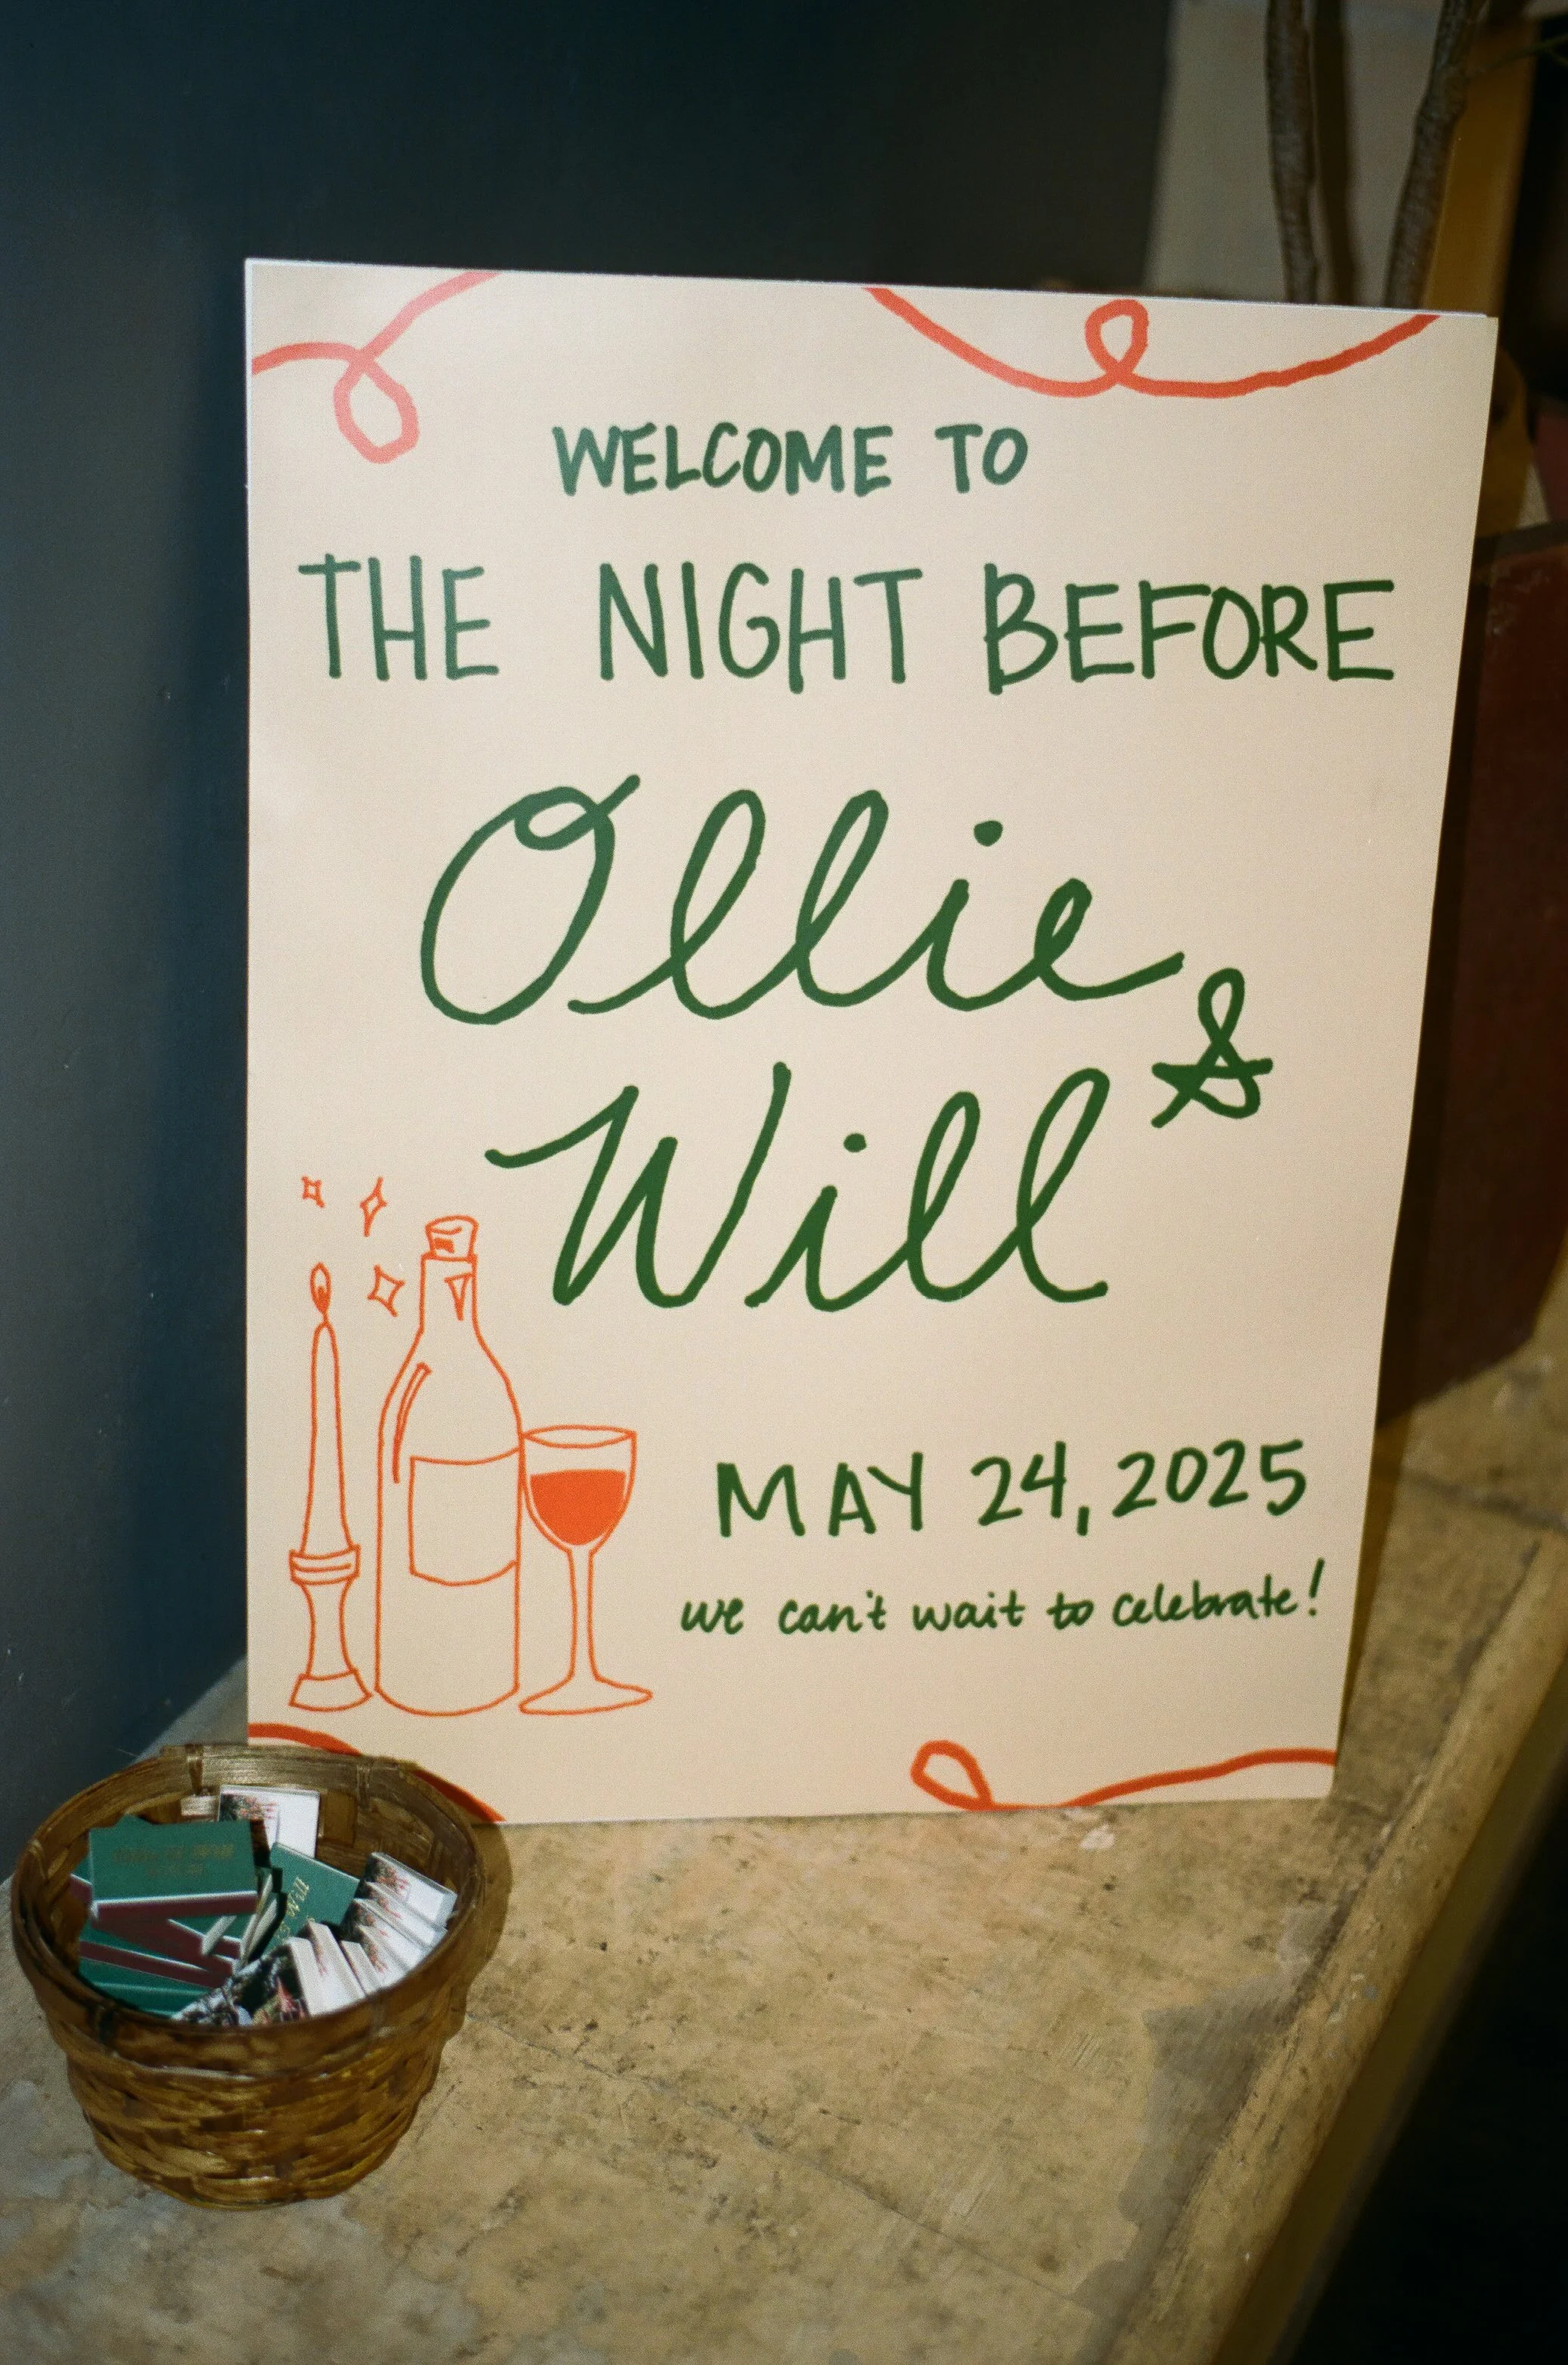 WELCOME TO
THE NIGHT BEFORE
Ollie
&
Will
MAY 24, 2025
we can't wait to celebrate!